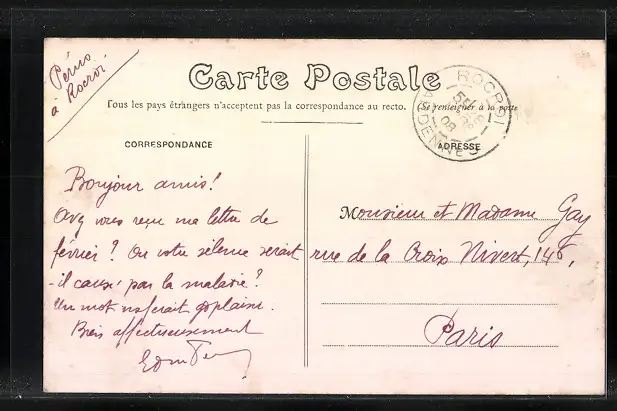 Périn
à Rocroi
Carte Postale
Tous les pays étrangers n'acceptent pas la correspondance au recto. (Se renseigner à la poste
CORRESPONDANCE
ADRESSE
ROCROI
ARDENNES
08
Bonjour amis!
Avez vous reçu ma lettre de
février? Ou votre silence serait
-il causé par la maladie?
Un mot me ferait plaisir.
Bien affectueusement
Monsieur et Madame Gay
rue de la Croix Nivert, 146,
Paris